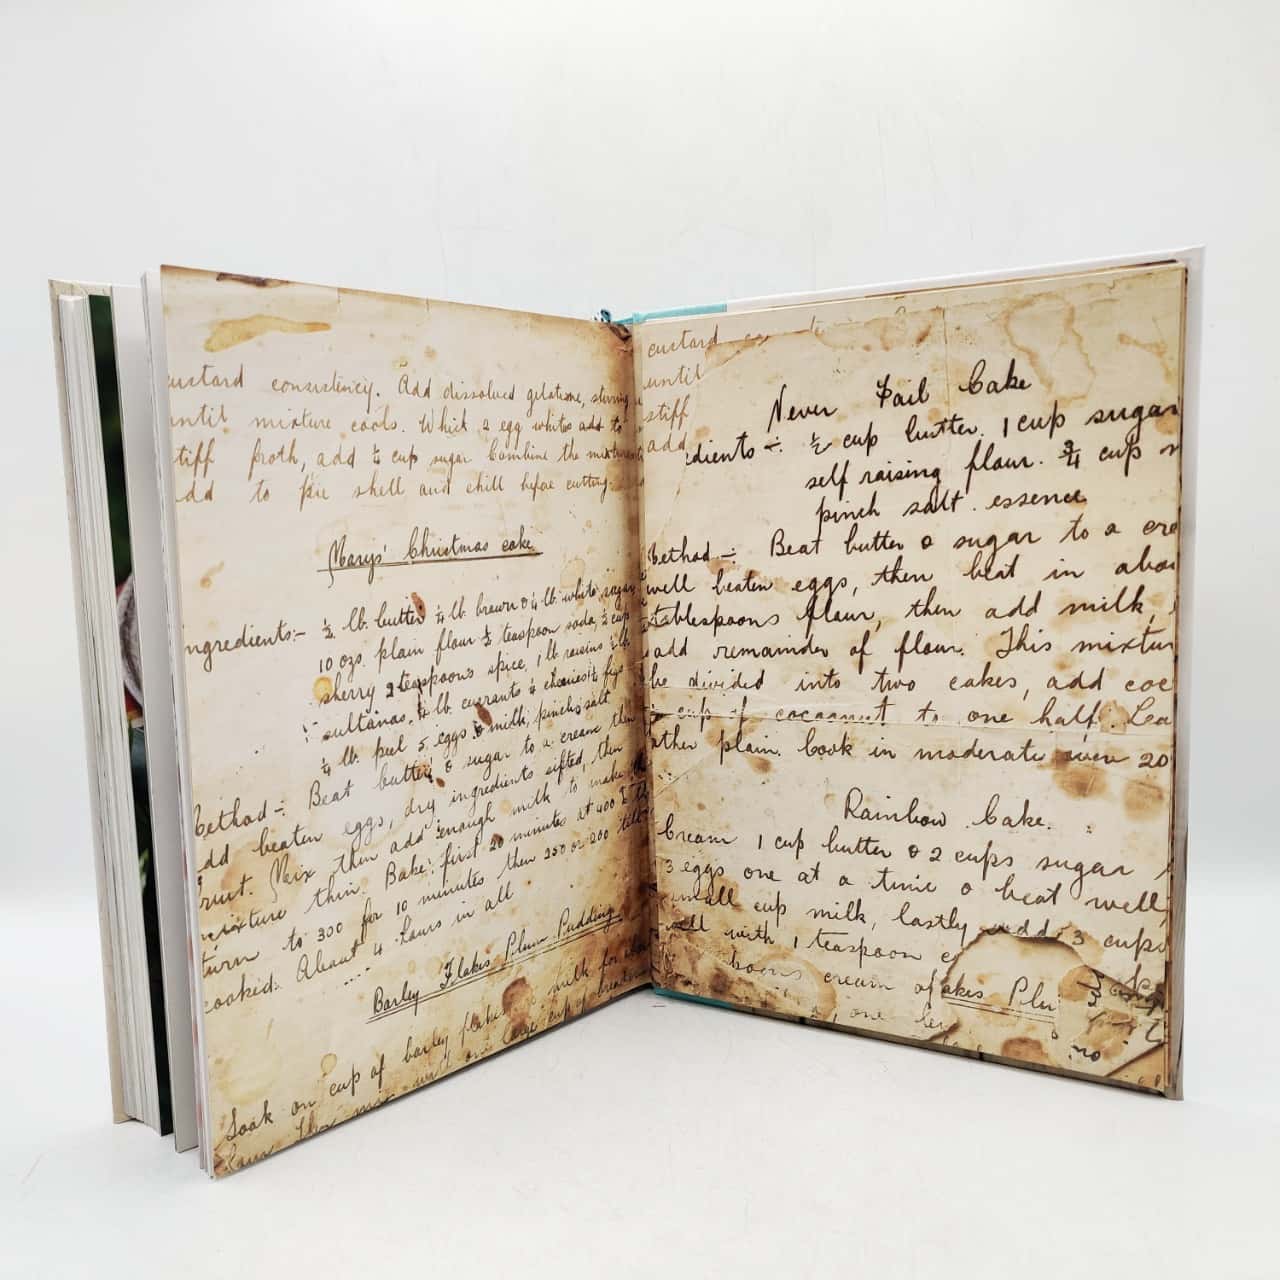 ustard consistency. Add dissolved gelatine, stirring
until mixture cools. Whisk 2 egg whites add to
stiff froth, add ¼ cup sugar Combine the mixture
add to pie shell and chill before cutting.
Marys' Christmas cake
ngredients:- ½ lb. butter ¼ lb. brown & ¼ lb. white sugar
10 ozs. plain flour ½ teaspoon soda, ½ cup
sherry 2 teaspoons spice, 1 lb raisins ½ lb.
sultanas, ¼ lb. currants ¼ cherries ½ figs
¼ lb. peel 5 eggs & milk, pinch salt
Method -: Beat butter & sugar to a cream then
add beaten eggs, dry ingredients sifted, then
fruit. Mix then add enough milk to make
mixture thin. Bake: first 20 minutes at 400
turn to 300 for 10 minutes then 250 or 200 till
cooked. About 4 hours in all
Barley Flakes Plum Pudding
Soak on cup of barley flakes milk for
one large cup of
custard
until
stiff
add
Never Fail Cake
dients -: ½ cup butter. 1 cup sugar
self raising flour. ¾ cup m
pinch salt. essence
Method -: Beat butter & sugar to a cre
well beaten eggs, then beat in abou
tablespoons flour, then add milk,
add remainder of flour. This mixtur
be divided into two cakes, add coc
½ cup of cocoanut to one half. Lea
other plain. Cook in moderate oven 20
Rainbow Cake.
Cream 1 cup butter & 2 cups sugar
3 eggs one at a time & beat well,
small cup milk, lastly add 3 cups
well with 1 teaspoon
cream of akes Plu
, one
no